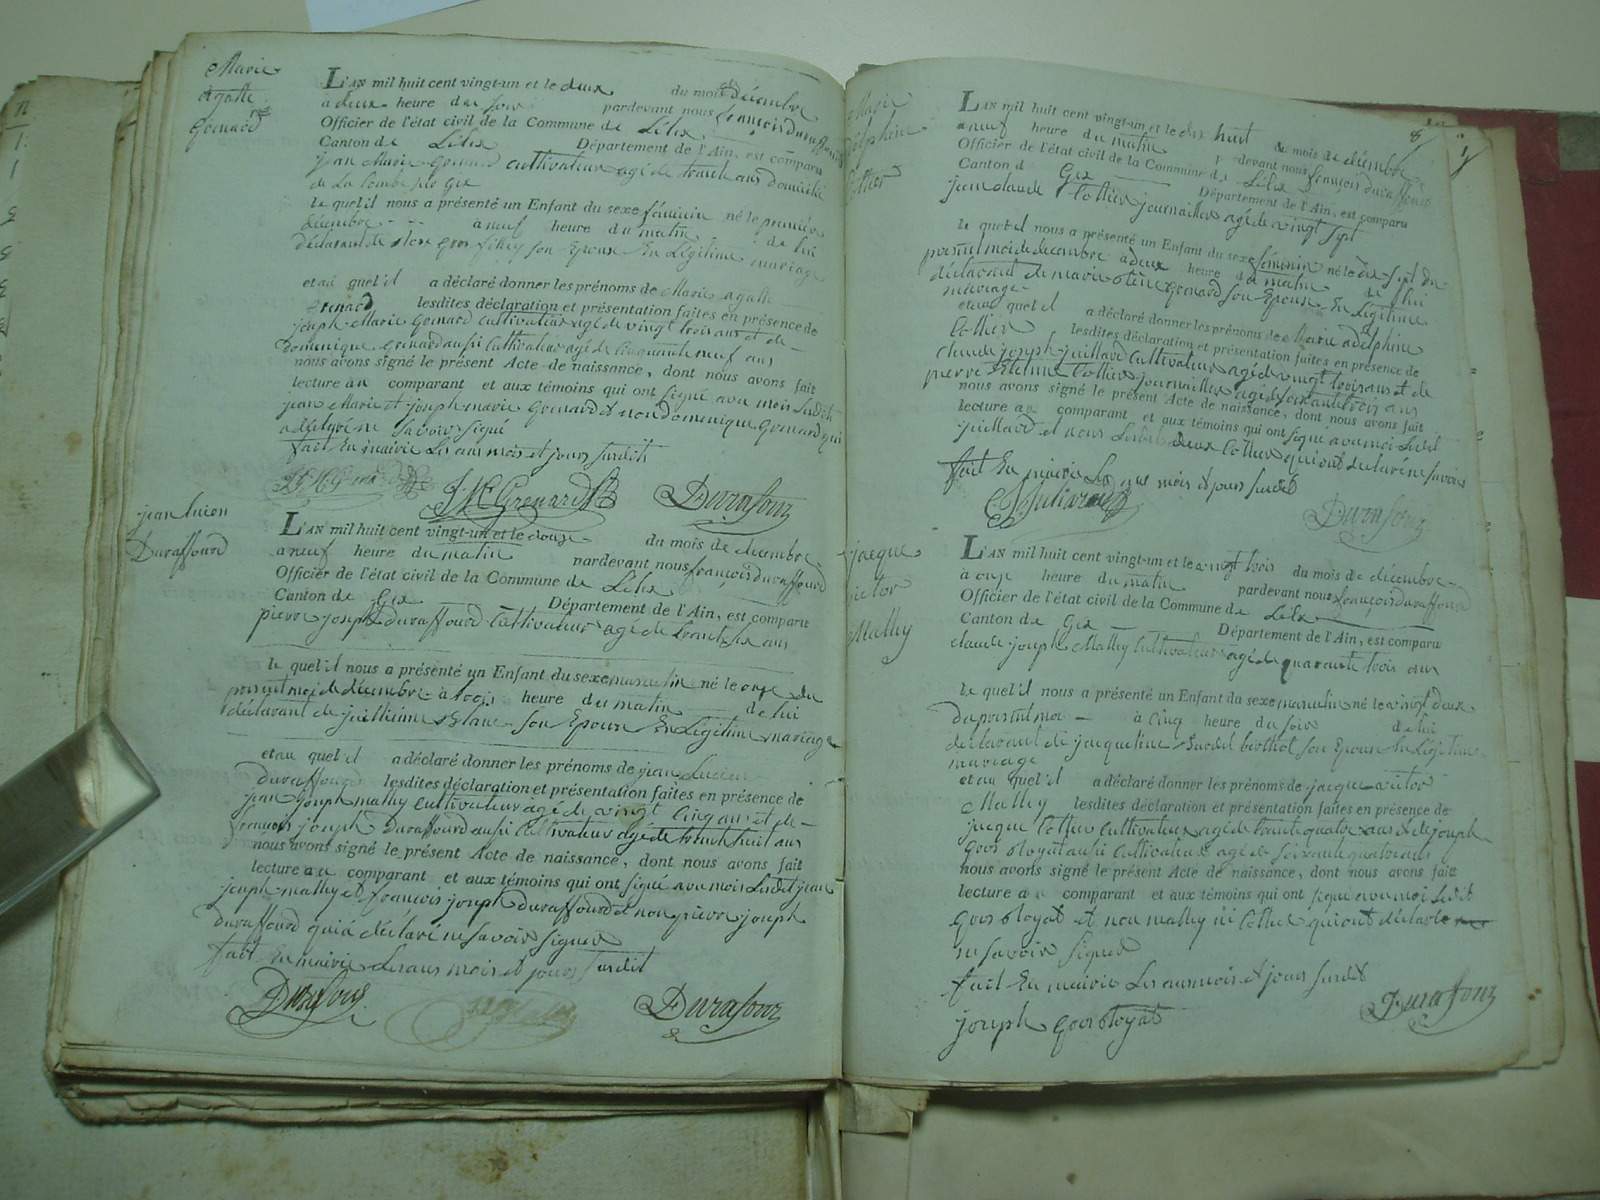 Marie
agatte
Grenard
L'AN mil huit cent vingt-un et le deux du mois de décembre
a deux heure du soir pardevant nous françois duraffourd
Officier de l'état civil de la Commune de Lélex
Canton de Lélex Département de l'Ain, est comparu
jean Marie Grenard cultivateur agé de trente ans domicilié
de La Combe
le quel il nous a présenté un Enfant du sexe féminin né le premier
décembre a neuf heure du matin de lui
déclarant de son Epouse En Légitime mariage
et au quel il a déclaré donner les prénoms de Marie agatte
Grenard lesdites déclaration et présentation faites en présence de
joseph Marie Grenard cultivateur agé de vingt trois ans et de
Dominique Grenard aussi cultivateur agé de cinquante neuf ans
nous avons signé le présent Acte de naissance, dont nous avons fait
lecture au comparant et aux témoins qui ont signé avec moi Ledit
jean Marie et joseph marie Grenard et non dominique Grenard qui
a déclaré ne savoir signé
fait En mairie Les ans mois et jours susdits
J M Grenard Durafour
jean Lucien
Duraffourd
L'AN mil huit cent vingt-un et le douze du mois de décembre
a neuf heure du matin pardevant nous françois duraffourd
Officier de l'état civil de la Commune de Lélex
Canton de Gex Département de l'Ain, est comparu
pierre joseph duraffourd cultivateur agé de trente six ans
le quel il nous a présenté un Enfant du sexe masculin né le onze du
présent moi de décembre à trois heure du matin de lui
déclarant de juillienne Blanc son Epouse En Légitime mariage
et au quel il a déclaré donner les prénoms de jean Lucien
duraffourd lesdites déclaration et présentation faites en présence de
jean joseph mathy cultivateur agé de vingt cinq ans et de
françois joseph Duraffourd aussi cultivateur agé de trente huit ans
nous avons signé le présent Acte de naissance, dont nous avons fait
lecture au comparant et aux témoins qui ont signé avec moi Ledit jean
joseph mathy et françois joseph duraffourd et non pierre joseph
duraffourd qui a déclaré ne savoir signer
fait En mairie Les ans mois et jours susdit
Durafour Durafour
Marie
delphine
Cottier
8
L'AN mil huit cent vingt-un et le dix huit du mois de décembre
a neuf heure du matin pardevant nous françois duraffourd
Officier de l'état civil de la Commune de Lélex
Canton de Gex Département de l'Ain, est comparu
jean claude Cottier journaillier agé de vingt sept
le quel il nous a présenté un Enfant du sexe féminin né le dix sept du
présent moi de decembre à deux heure du matin de lui
déclarant de marie Grenard son Epouse En Légitime
mariage
et au quel il a déclaré donner les prénoms de Marie adelphine
Cottier lesdites déclaration et présentation faites en présence de
claude joseph juillard cultivateur agé de vingt trois ans et de
pierre Etienne Cottier journaillier agé de soixante trois ans
nous avons signé le présent Acte de naissance, dont nous avons fait
lecture au comparant et aux témoins qui ont signé avec moi Ledit
juillard et nous Lesdits deux Cottier qui ont declaré ne savoir
fait En mairie Les ans mois et jours susdit
C J Juliard Durafour
jacque
victor
Mathy
L'AN mil huit cent vingt-un et le vingt trois du mois de décembre
à onze heure du matin pardevant nous françois duraffourd
Officier de l'état civil de la Commune de Lélex
Canton de Gex Département de l'Ain, est comparu
claude joseph Mathy cultivateur agé de quarante trois ans
le quel il nous a présenté un Enfant du sexe masculin né le vingt deux
du présent moi à cinq heure du soir de lui
déclarant de jacqueline son Epouse En Légitime
mariage
et au quel il a déclaré donner les prénoms de jacque victor
Mathy lesdites déclaration et présentation faites en présence de
jacque Cottier cultivateur agé de trente quatre ans et de joseph
Gros aussi cultivateur agé de soixante quatre ans
nous avons signé le présent Acte de naissance, dont nous avons fait
lecture au comparant et aux témoins qui ont signé avec moi Ledit
Gros et non mathy ni Cottier qui ont déclaré
ne savoir signer
fait En mairie Les ans mois et jours susdit
joseph gros Durafour